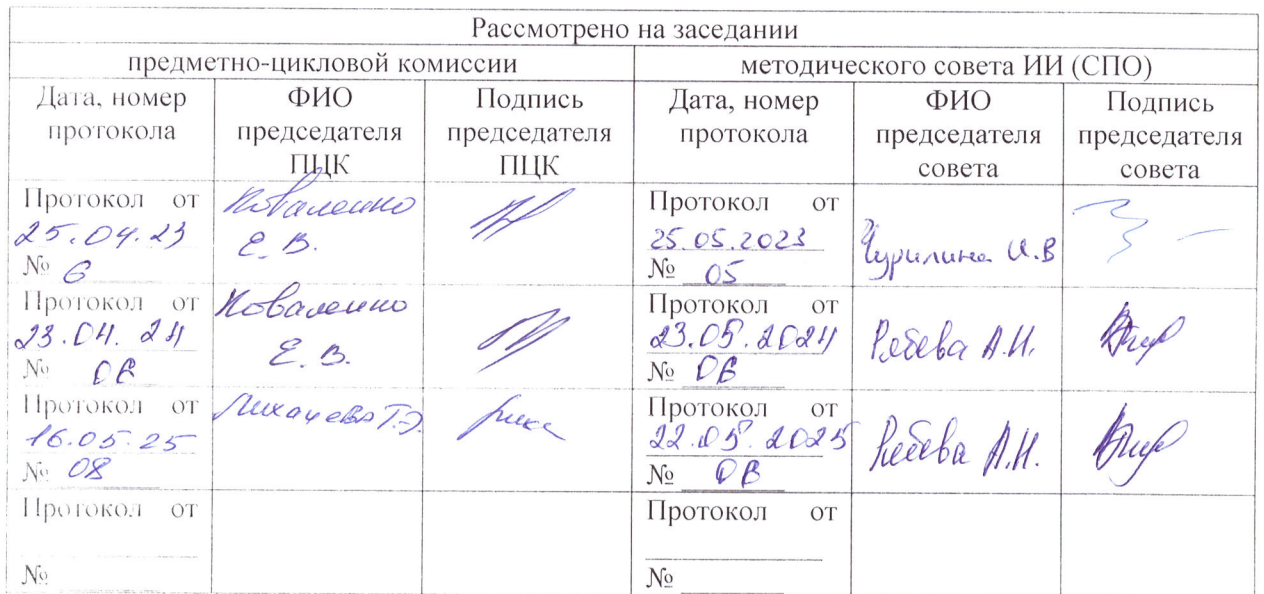 Рассмотрено на заседании
предметно-цикловой комиссии методического совета ИИ (СПО)
Дата, номер протокола ФИО председателя ПЦК Подпись председателя ПЦК Дата, номер протокола ФИО председателя совета Подпись председателя совета
Протокол от 25.04.23 № 6 Коваленко Е.В. Протокол от 25.05.2023 № 05 Чурилина И.В
Протокол от 23.04.24 № 06 Коваленко Е.В. Протокол от 23.05.2024 № 06 А.И.
Протокол от 16.05.25 № 08 Лихачева Т.Э. Протокол от 22.05.2025 № А.И.
Протокол от № Протокол от №